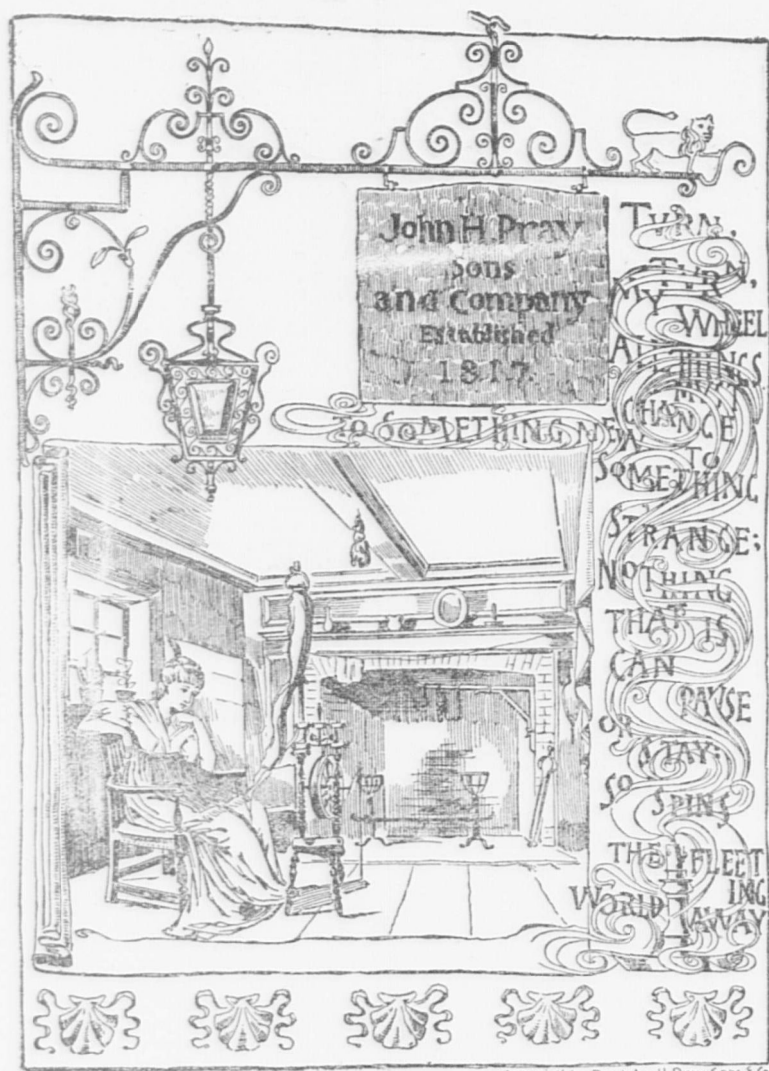 John H. Pray
Sons
and Company
Established
1817.
TURN,
TURN,
MY WHEEL
ALL THINGS
MUST
CHANGE
TO SOMETHING NEW
TO
SOMETHING
STRANGE;
NOTHING
THAT IS
CAN
PAUSE
OR
STAY:
SO SPINS
THE FLEET
ING
WORLD AWAY